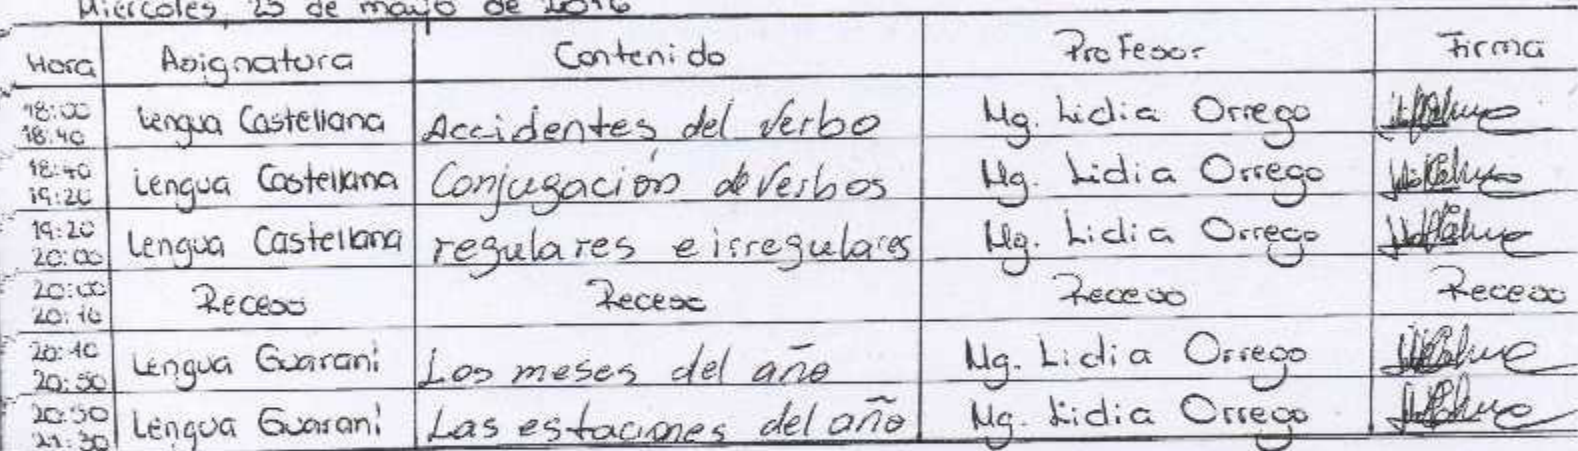 Miércoles, 25 de mayo de 2016
Hora Asignatura Contenido Profesor Firma
18:00 18:40 Lengua Castellana Accidentes del verbo Mg. Lidia Orrego
18:40 19:20 Lengua Castellana Conjugación de verbos Mg. Lidia Orrego
19:20 20:00 Lengua Castellana regulares e irregulares Mg. Lidia Orrego
20:00 20:10 Receso Receso Receso Receso
20:10 20:50 Lengua Guaraní Los meses del año Mg. Lidia Orrego
20:50 21:30 Lengua Guaraní Las estaciones del año Mg. Lidia Orrego